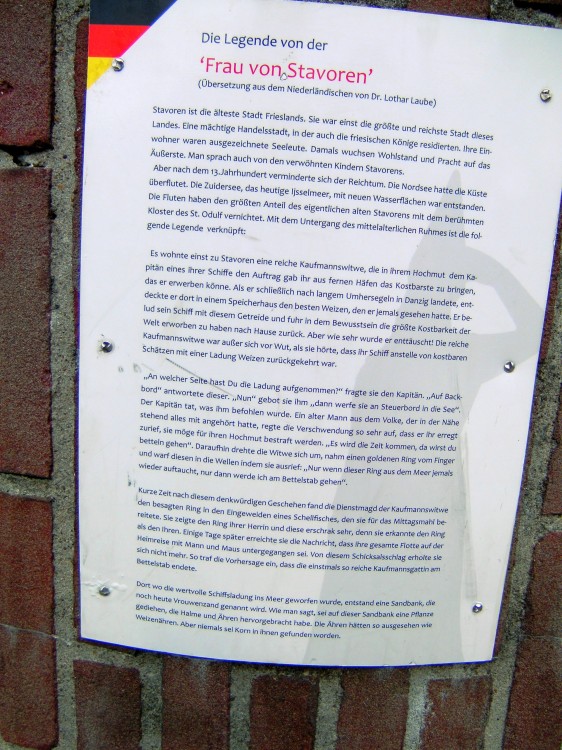 Die Legende von der
‘Frau von Stavoren’
(Übersetzung aus dem Niederländischen von Dr. Lothar Laube)
Stavoren ist die älteste Stadt Frieslands. Sie war einst die größte und reichste Stadt dieses
Landes. Eine mächtige Handelsstadt, in der auch die friesischen Könige residierten. Ihre Ein-
wohner waren ausgezeichnete Seeleute. Damals wuchsen Wohlstand und Pracht auf das
Äußerste. Man sprach auch von den verwöhnten Kindern Stavorens.
Aber nach dem 13.Jahrhundert verminderte sich der Reichtum. Die Nordsee hatte die Küste
überflutet. Die Zuidersee, das heutige Ijsselmeer, mit neuen Wasserflächen war entstanden.
Die Fluten haben den größten Anteil des eigentlichen alten Stavorens mit dem berühmten
Kloster des St. Odulf vernichtet. Mit dem Untergang des mittelalterlichen Ruhmes ist die fol-
gende Legende verknüpft:
Es wohnte einst zu Stavoren eine reiche Kaufmannswitwe, die in ihrem Hochmut dem Ka-
pitän eines ihrer Schiffe den Auftrag gab ihr aus fernen Häfen das Kostbarste zu bringen,
das er erwerben könne. Als er schließlich nach langem Umhersegeln in Danzig landete, ent-
deckte er dort in einem Speicherhaus den besten Weizen, den er jemals gesehen hatte. Er be-
lud sein Schiff mit diesem Getreide und fuhr in dem Bewusstsein die größte Kostbarkeit der
Welt erworben zu haben nach Hause zurück. Aber wie sehr wurde er enttäuscht! Die reiche
Kaufmannswitwe war außer sich vor Wut, als sie hörte, dass ihr Schiff anstelle von kostbaren
Schätzen mit einer Ladung Weizen zurückgekehrt war.
„An welcher Seite hast Du die Ladung aufgenommen?“ fragte sie den Kapitän. „Auf Back-
bord“ antwortete dieser. „Nun“ gebot sie ihm „dann werfe sie an Steuerbord in die See“.
Der Kapitän tat, was ihm befohlen wurde. Ein alter Mann aus dem Volke, der in der Nähe
stehend alles mit angehört hatte, regte die Verschwendung so sehr auf, dass er ihr erregt
zurief, sie möge für ihren Hochmut bestraft werden. „Es wird die Zeit kommen, da wirst du
betteln gehen“. Daraufhin drehte die Witwe sich um, nahm einen goldenen Ring vom Finger
und warf diesen in die Wellen indem sie ausrief: „Nur wenn dieser Ring aus dem Meer jemals
wieder auftaucht, nur dann werde ich am Bettelstab gehen“.
Kurze Zeit nach diesem denkwürdigen Geschehen fand die Dienstmagd der Kaufmannswitwe
den besagten Ring in den Eingeweiden eines Schellfisches, den sie für das Mittagsmahl be-
reitete. Sie zeigte den Ring ihrer Herrin und diese erschrak sehr, denn sie erkannte den Ring
als den ihren. Einige Tage später erreichte sie die Nachricht, dass ihre gesamte Flotte auf der
Heimreise mit Mann und Maus untergegangen sei. Von diesem Schicksalsschlag erholte sie
sich nicht mehr. So traf die Vorhersage ein, dass die einstmals so reiche Kaufmannsgattin am
Bettelstab endete.
Dort wo die wertvolle Schiffsladung ins Meer geworfen wurde, entstand eine Sandbank, die
noch heute Vrouwenzand genannt wird. Wie man sagt, sei auf dieser Sandbank eine Pflanze
gediehen, die Halme und Ähren hervorgebracht habe. Die Ähren hätten so ausgesehen wie
Weizenähren. Aber niemals sei Korn in ihnen gefunden worden.